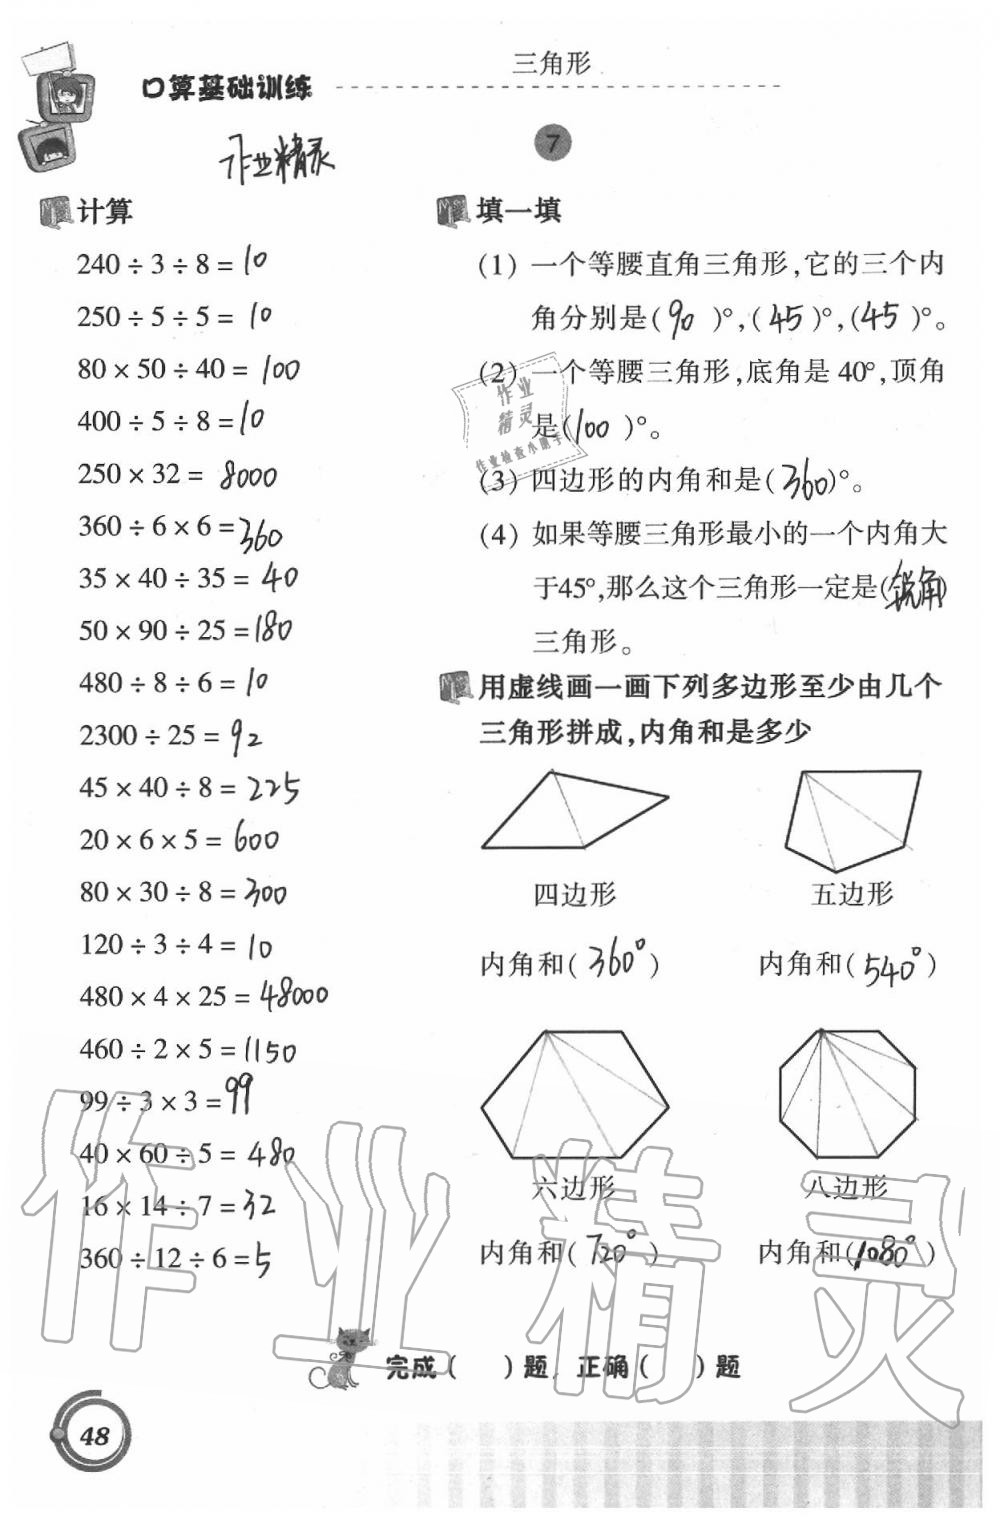 三角形
口算基础训练
作业精灵
7
计算
240 ÷ 3 ÷ 8 = 10
250 ÷ 5 ÷ 5 = 10
80 × 50 ÷ 40 = 100
400 ÷ 5 ÷ 8 = 10
250 × 32 = 8000
360 ÷ 6 × 6 = 360
35 × 40 ÷ 35 = 40
50 × 90 ÷ 25 = 180
480 ÷ 8 ÷ 6 = 10
2300 ÷ 25 = 92
45 × 40 ÷ 8 = 225
20 × 6 × 5 = 600
80 × 30 ÷ 8 = 300
120 ÷ 3 ÷ 4 = 10
480 × 4 × 25 = 48000
460 ÷ 2 × 5 = 1150
99 ÷ 3 × 3 = 99
40 × 60 ÷ 5 = 480
16 × 14 ÷ 7 = 32
360 ÷ 12 ÷ 6 = 5
填一填
(1) 一个等腰直角三角形,它的三个内
角分别是( 90 )°,( 45 )°,( 45 )°。
(2) 一个等腰三角形,底角是 40°,顶角
是( 100 )°。
(3) 四边形的内角和是( 360 )°。
(4) 如果等腰三角形最小的一个内角大
于45°,那么这个三角形一定是( 锐角 )
三角形。
作业
精灵
作业检查小助手
用虚线画一画下列多边形至少由几个
三角形拼成,内角和是多少
四边形 五边形
内角和( 360° ) 内角和( 540° )
六边形 八边形
内角和( 720° ) 内角和( 1080° )
作业精灵
完成( )题 正确( )题
48